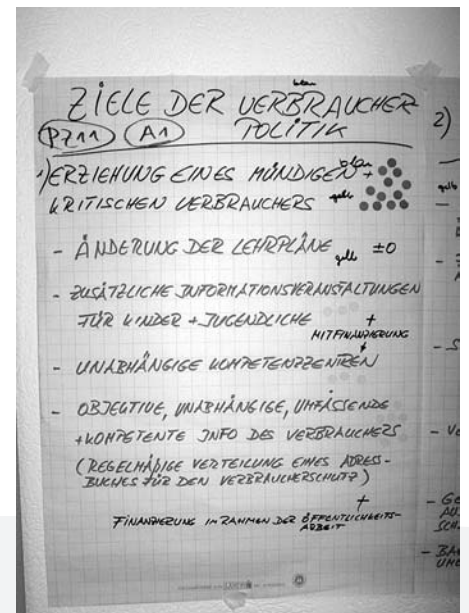 blau
ZIELE DER VERBRAUCHER
POLITIK
PZ11 A1
1) ERZIEHUNG EINES MÜNDIGEN + blau
KRITISCHEN VERBRAUCHERS gelb
- ÄNDERUNG DER LEHRPLÄNE gelb ±0
- ZUSÄTZLICHE INFORMATIONSVERANSTALTUNGEN
FÜR KINDER + JUGENDLICHE +
MITFINANZIERUNG
- UNABHÄNGIGE KOMPETENZZENTREN
- OBJEKTIVE, UNABHÄNGIGE, UMFASSENDE
+ KOMPETENTE INFO DES VERBRAUCHERS
(REGELMÄßIGE VERTEILUNG EINES ADRESS-
BUCHES FÜR DEN VERBRAUCHERSCHUTZ)
+
FINANZIERUNG IM RAHMEN DER ÖFFENTLICHKEITS-
ARBEIT
2)
gelb